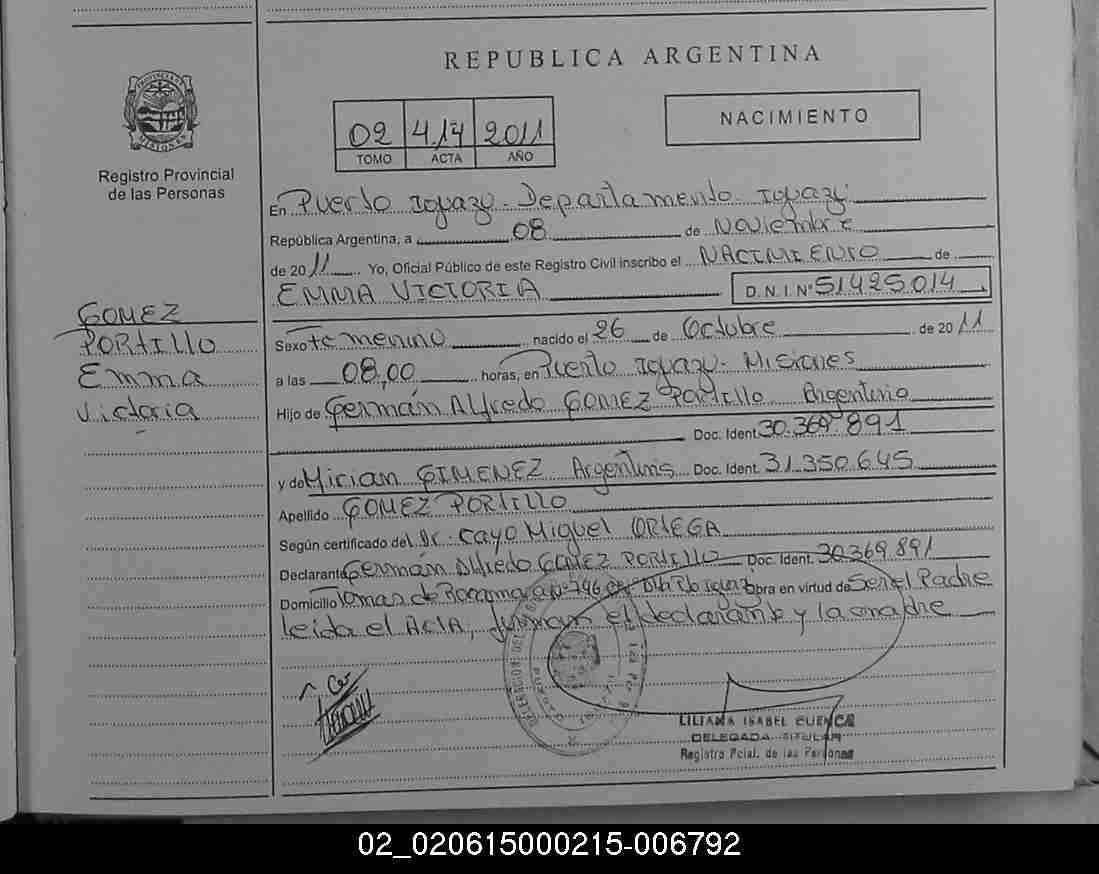 REPUBLICA ARGENTINA
NACIMIENTO
02 417 2011
TOMO ACTA AÑO
PROVINCIA DE MISIONES
Registro Provincial
de las Personas
GOMEZ
PORTILLO
Emma
Victoria
En Puerto Iguazu. Departamento. Iguazu.
República Argentina, a 08 de Noviembre
de 2011 Yo, Oficial Público de este Registro Civil inscribo el NACIMIENTO de
EMMA VICTORIA D.N.I. Nº 51425014
Sexo femenino nacido el 26 de Octubre de 2011
a las 08,00 horas, en Puerto Iguazu. Misiones
Hijo de Germán Alfredo GOMEZ Portillo Argentino
Doc. Ident. 30.369.891
y de Mirian GIMENEZ Argentinis Doc. Ident. 31.350.645
Apellido GOMEZ PORTILLO
Según certificado del Dr. Cayo Miguel ORTEGA
Declarante Germán Alfredo GOMEZ PORTILLO Doc. Ident. 30369891
Domicilio Tomas de Nº 796 Obra en virtud de Ser el Padre
leida el Acta, firman el declarante y la madre
LILIANA ISABEL CUENCA
DELEGADA TITULAR
Registro Pcial. de las Personas
02_020615000215-006792